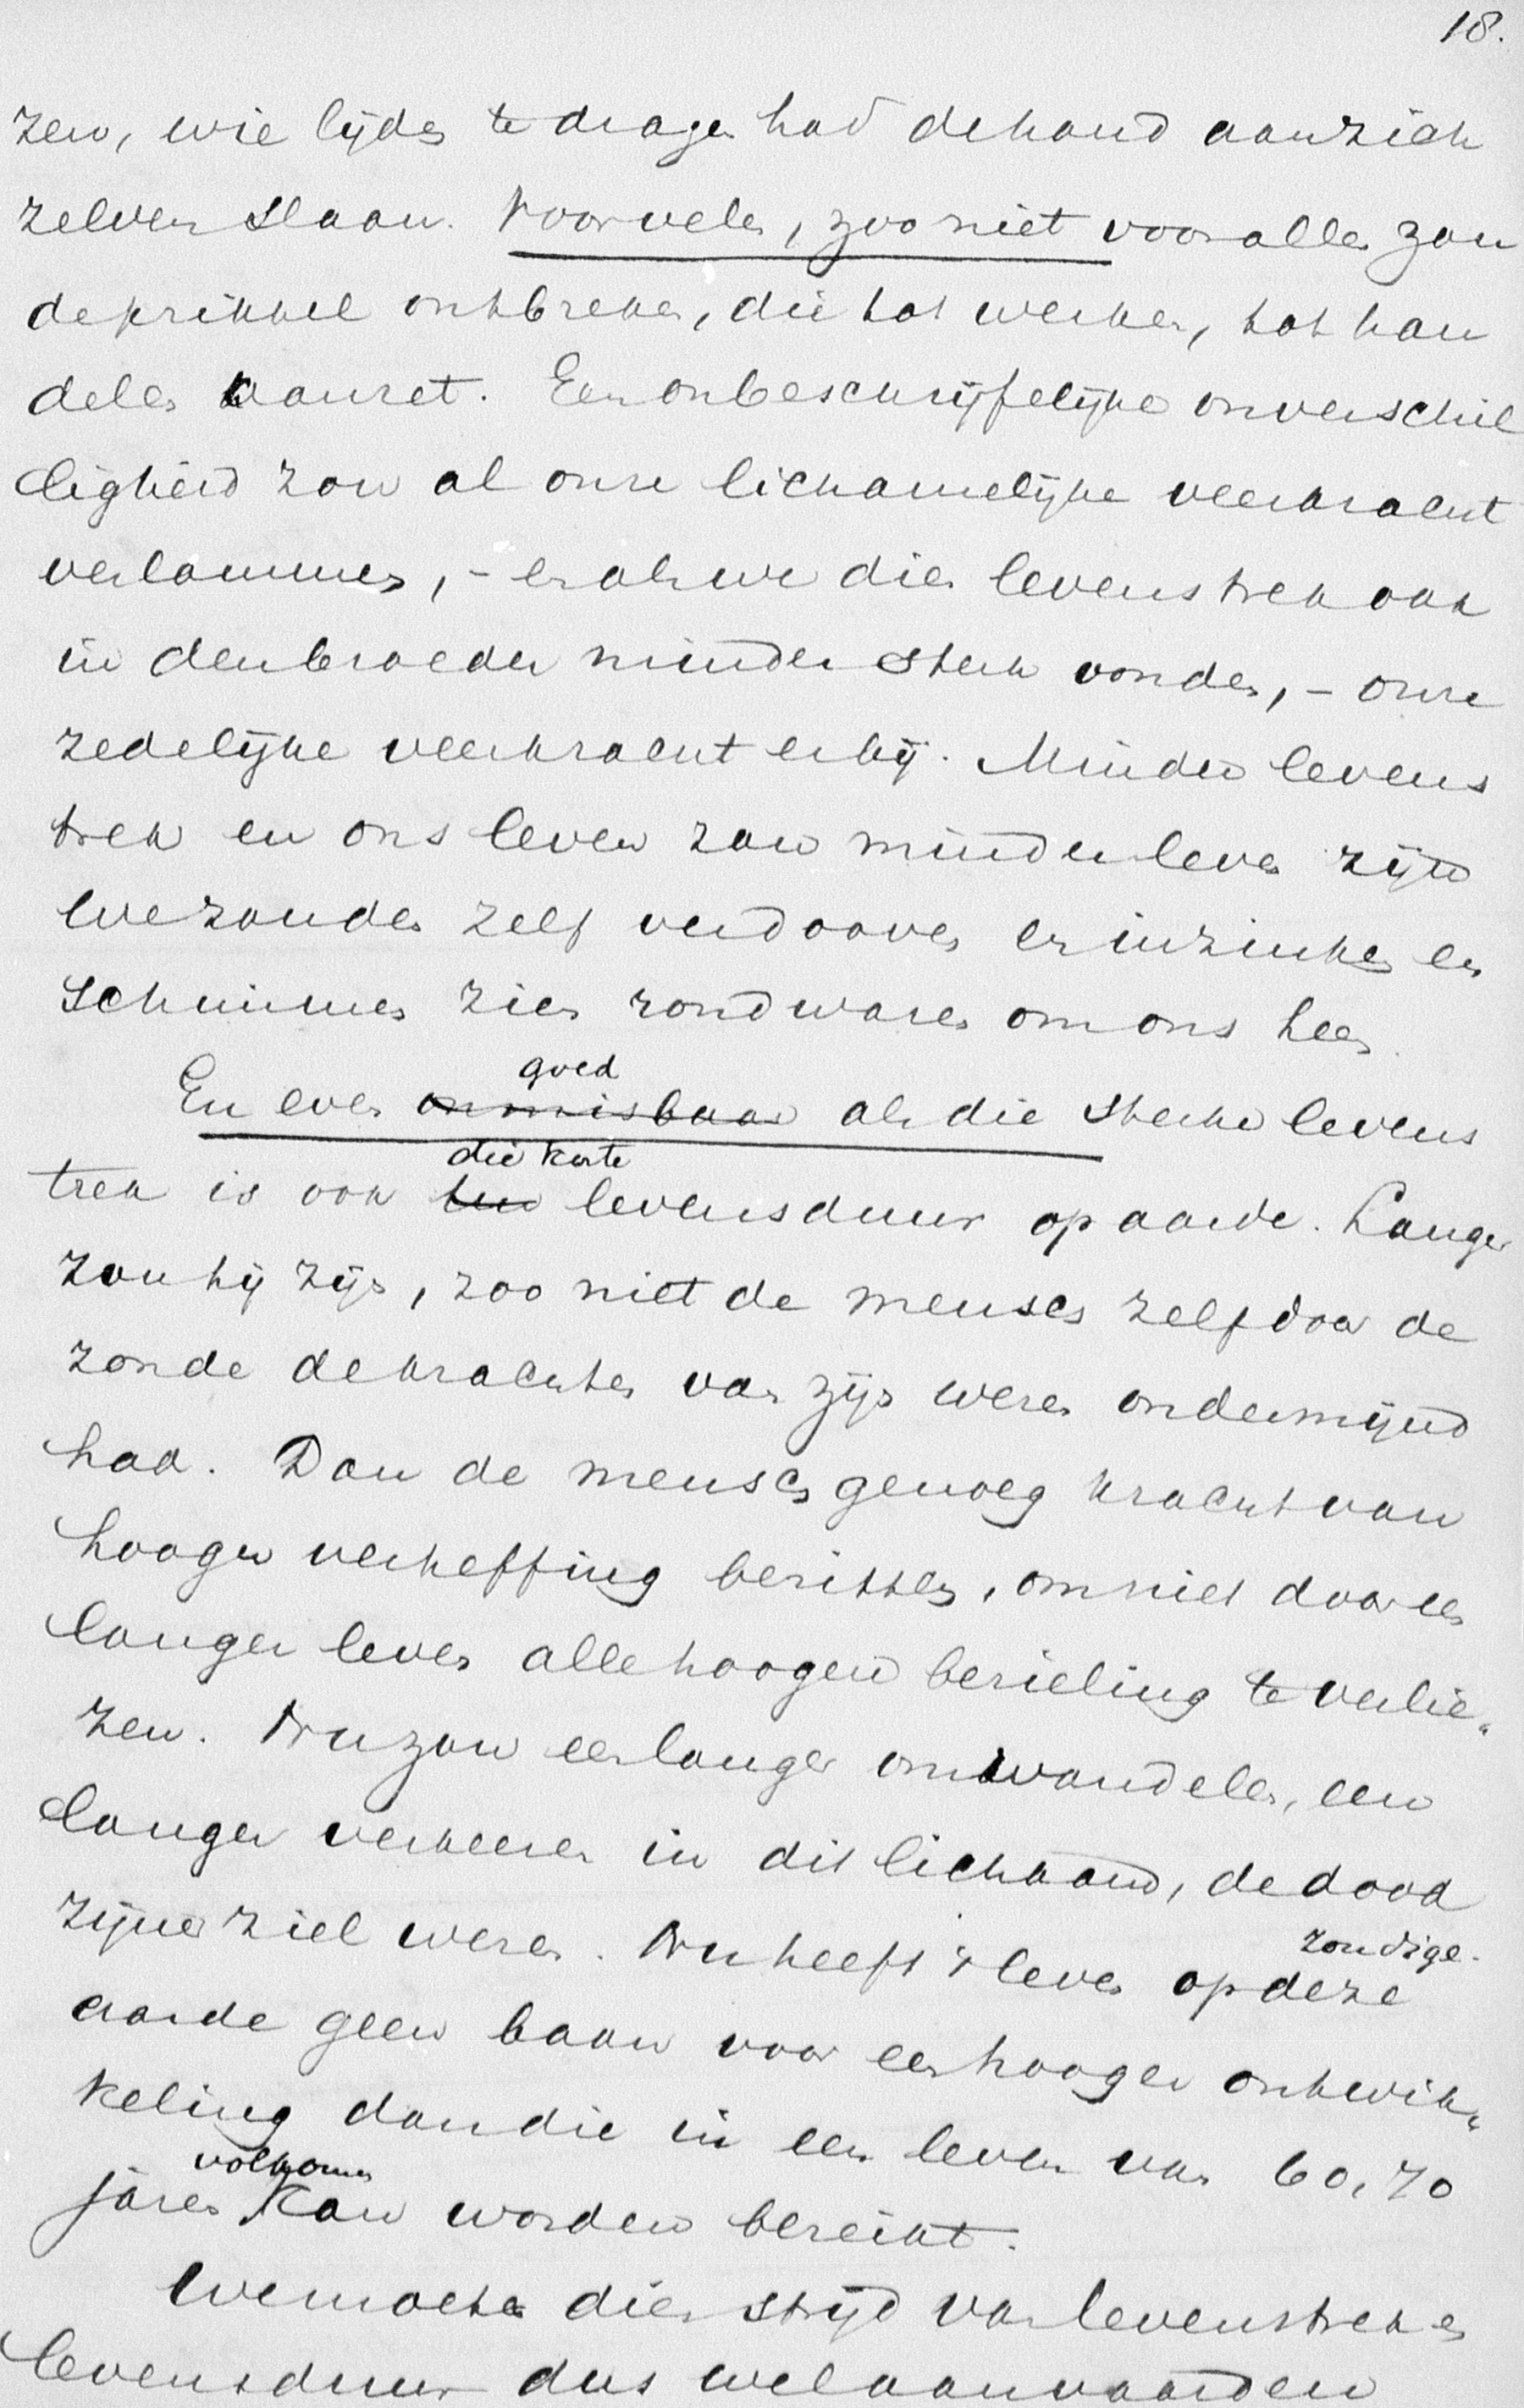 18.
zen, wie lijden te dragen had de hand aan zich
zelven slaan. Voor velen, zoo niet voor allen zou
de prikkel ontbreken, die tot werken, tot han
delen aanzet. Een onbeschrijfelijke onverschil
ligheid zou al onze lichamelijke veerkracht
verlammen, – en als we dien levenstrek ook
in den broeder minder sterk vonden, – onze
zedelijke veerkracht erbij. Minder levens
trek en ons leven zou minder leven zijn
We zouden zelf verdooven en inzinken en
schimmen zien rondwaren om ons heen.
goed
En even onmisbaar als die sterke levens
die korte
trek is ook levensduur op aarde. Langer
zou hij zijn, zoo niet de mensch zelf door de
zonde de krachten van zijn wezen ondermijnd
had. Dan de mensch genoeg kracht van
hooger verheffing bezitten, om niet door een
langer leven alle hoogere bezieling te verlie„
zen. Nu zou een langer omwandelen, een
langer verkeeren in dit lichaam, de dood
zijner ziel wezen. Nu heeft 't leven op deze
zondige
aarde geen baan voor een hooger ontwik„
keling dan die in een leven van 60, 70
volkomen
jaren kan worden bereikt.
We moeten dien strijd van levenstrek en
levensduur dus wel aanvaarden